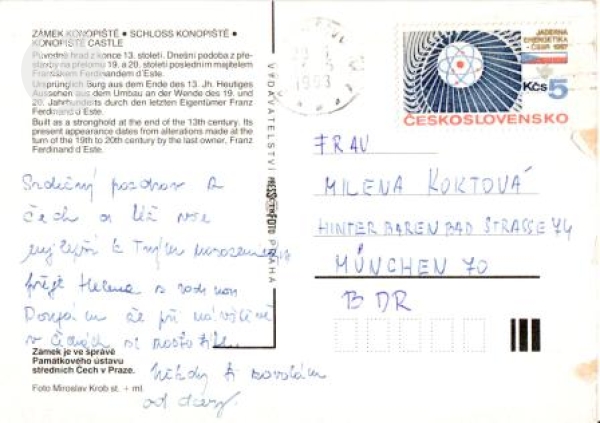 ZÁMEK KONOPIŠTĚ • SCHLOSS KONOPIŠTĚ •
KONOPIŠTĚ CASTLE
Původně hrad z konce 13. století. Dnešní podoba z pře-
stavby na přelomu 19. a 20. století posledním majitelem
Františkem Ferdinandem d'Este.
Ursprünglich Burg aus dem Ende des 13. Jh. Heutiges
Aussehen aus dem Umbau an der Wende des 19. und
20. Jahrhunderts durch den letzten Eigentümer Franz
Ferdinand d'Este.
Built as a stronghold at the end of the 13th century. Its
present appearance dates from alterations made at the
turn of the 19th to 20th century by the last owner, Franz
Ferdinand d'Este.
Srdečný pozdrav z
Čech a Už vše
nejlepší k Tvým narozeninám
přeje Helena s rodinou
Doufám že při návštěvě
v Čechách se
Někdy ti zavolám
Zámek je ve správě
Památkového ústavu
středních Čech v Praze.
Foto Miroslav Krob st. + ml.
VYDAVATELSTVÍ PRESSFOTO PRAHA
1993
JADERNÁ
ENERGETIKA
ČSSR 1987
Kčs 5
ČESKOSLOVENSKO
FRAU
MILENA KOKTOVÁ
HINTERBARENBAD STRASSE 74
MÜNCHEN 70
BDR